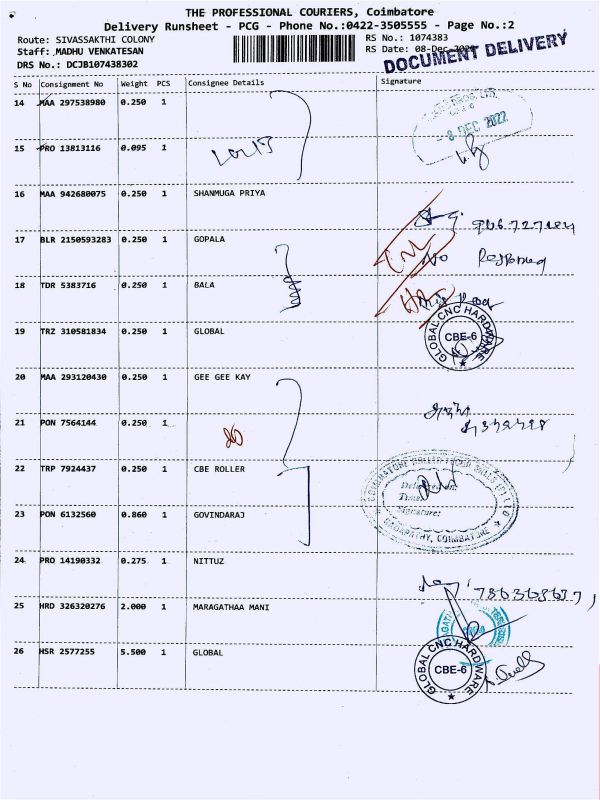 THE PROFESSIONAL COURIERS, Coimbatore
Delivery Runsheet - PCG - Phone No.:0422-3505555 - Page No.:2
Route: SIVASSAKTHI COLONY
RS No.: 1074383
Staff: MADHU VENKATESAN
RS Date: 08-Dec-2022
DRS No.: DCJB107438302
DOCUMENT DELIVERY
S No Consignment No Weight PCS Consignee Details Signature
14 MAA 297538980 0.250 1
- 8 DEC 2022
15 PRO 13813116 0.095 1
16 MAA 942680075 0.250 1 SHANMUGA PRIYA
17 BLR 2150593283 0.250 1 GOPALA
No
18 TDR 5383716 0.250 1 BALA
19 TRZ 310581834 0.250 1 GLOBAL
GLOBAL CNC HARDWARE
CBE-6
20 MAA 293120430 0.250 1 GEE GEE KAY
21 PON 7564144 0.250 1
22 TRP 7924437 0.250 1 CBE ROLLER
Time:
Signature:
GANAPATHY, COIMBATORE
23 PON 6132560 0.860 1 GOVINDARAJ
24 PRO 14190332 0.275 1 NITTUZ
25 HRD 326320276 2.000 1 MARAGATHAA MANI
26 HSR 2577255 5.500 1 GLOBAL
GLOBAL CNC HARDWARE
CBE-6